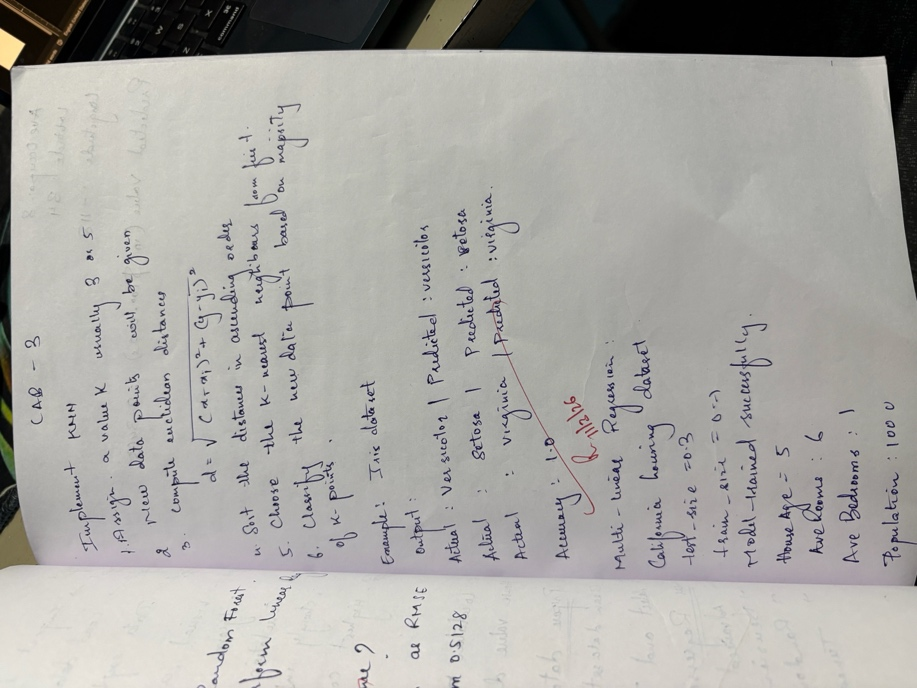 LAB - 3
Implement KNN
1. Assign a value K usually 3 or 5
2 New data points will be given
3. compute euclidean distances
d = √(x+xi)²+(y-yi)²
4. Sort the distances in ascending order
5. Choose the k-nearest neighbours from first.
6. Classify the new data point based on majority
of k-points.
Example: Iris dataset
Output:
Actual : versicolor | Predicted : versicolor
Actual : Setosa | Predicted : setosa
Actual : virginia | Predicted : virginia.
Accuracy : 1.0
Multi-linear Regression:
California housing dataset
test-size = 0.3
train-size = 0.7
Model-trained successfully.
House Age = 5
Ave Rooms : 6
Ave Bedrooms : 1
Population : 1000
andom Forest.
form linear
?
as RMSE
m 0.5128
command